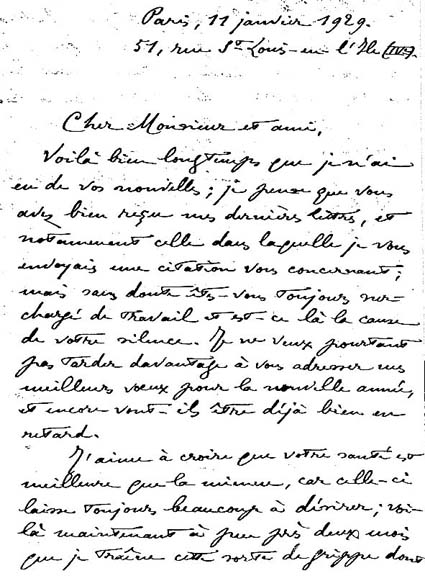 Paris, 11 janvier 1929.
51, rue St Louis-en l'Ile (IVe).
Cher Monsieur et ami,
Voilà bien longtemps que je n'ai
eu de vos nouvelles ; je pense que vous
avez bien reçu mes dernières lettres, et
notamment celle dans laquelle je vous
envoyais une citation vous concernant ;
mais sans doute êtes-vous toujours sur-
chargé de travail et est-ce là la cause
de votre silence. Je ne veux pourtant
pas tarder davantage à vous adresser mes
meilleurs voeux pour la nouvelle année,
et encore vont-ils être déjà bien en
retard.
J'aime à croire que votre santé est
meilleure que la mienne, car celle-ci
laisse toujours beaucoup à désirer ; voi-
là maintenant à peu près deux mois
que je traîne cette sorte de grippe dont